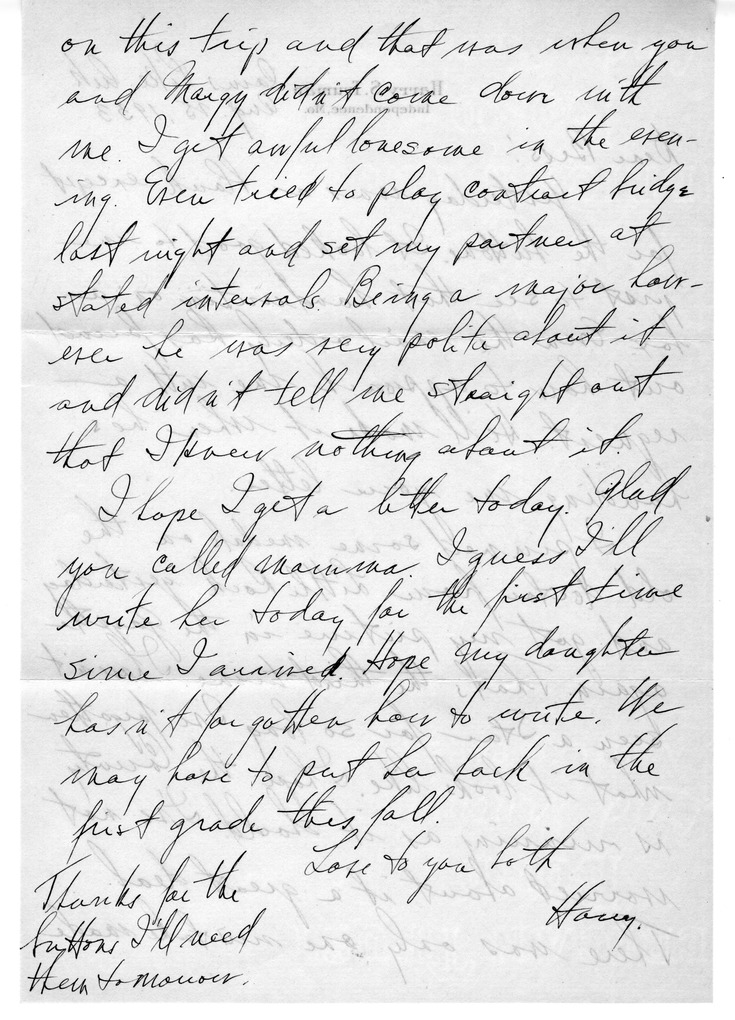 on this trip and that was when you
and Margy didn't come down with
me. I get awful lonesome in the even-
ing. Even tried to play contract bridge
last night and set my partner at
stated intervals. Being a major how-
ever he was very polite about it
and didn't tell me straight out
that I knew nothing about it.
I hope I get a letter today. Glad
you called mamma. I guess I'll
write her today for the first time
since I arrived. Hope my daughter
hasn't forgotten how to write. We
may have to put her back in the
first grade this fall.
Love to you both
Harry.
Thanks for the
buttons I'll need
them tomorrow.